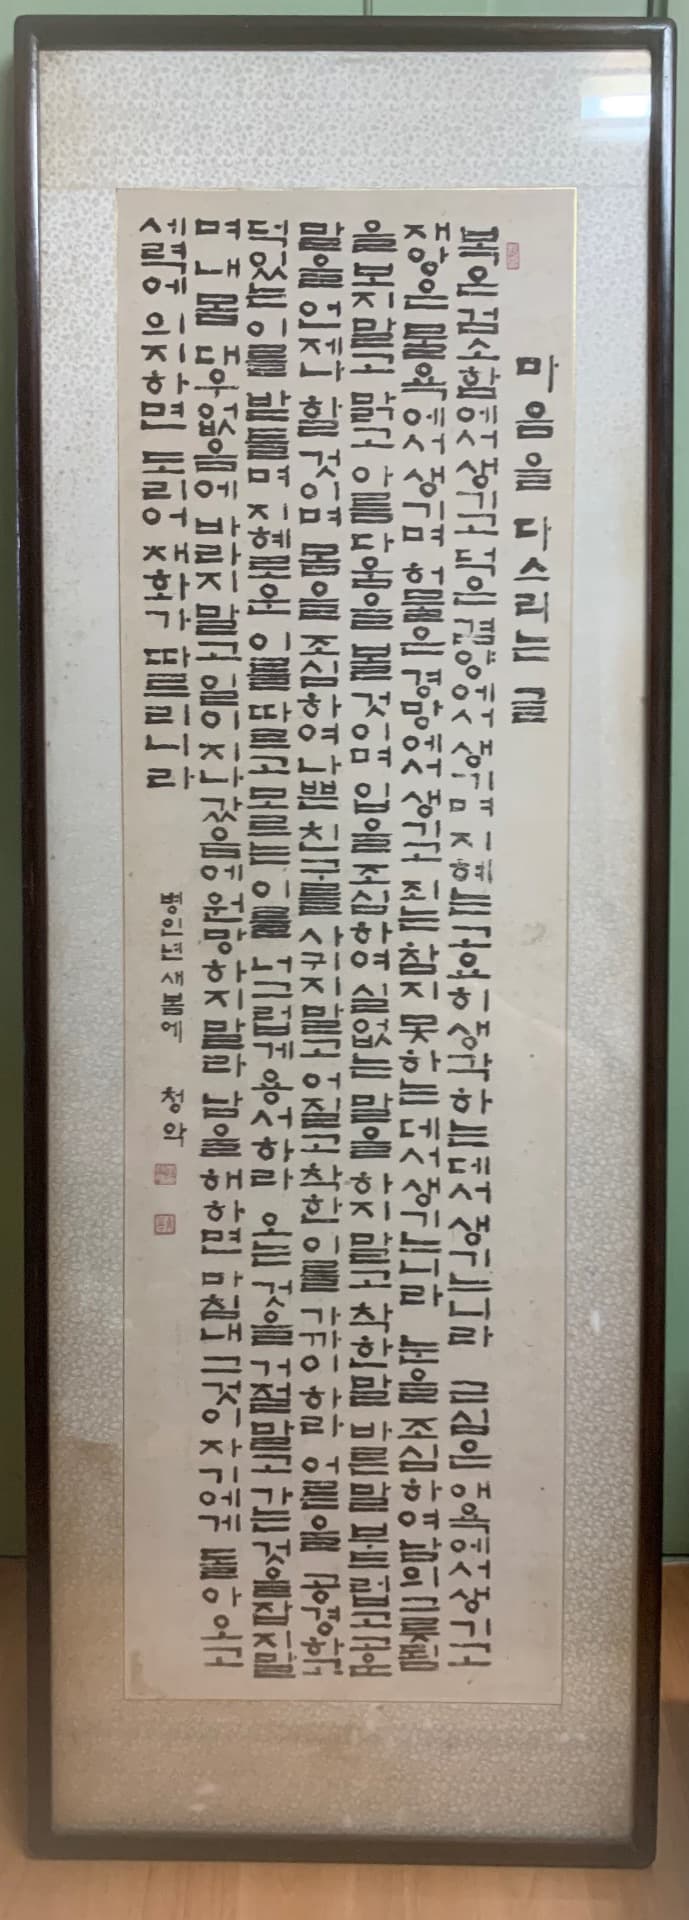 마음을 다스리는 글
복은 검소함에서 생기고 덕은 겸양에서 생기며 지혜는 고요히 생각하는데서 생기느니라 근심은 애욕에서 생기고
재앙은 물욕에서 생기며 허물은 경망에서 생기고 죄는 참지 못하는데서 생기느니라 눈을 조심하여 남의 그릇됨
을 보지말고 맑고 아름다움을 볼것이며 입을 조심하여 실없는 말을 하지 말고 착한말 바른말 부드럽고 고운
말을 언제나 할 것이며 몸을 조심하여 나쁜 친구를 사귀지말고 어질고 착한 이를 가까이 하라 어른을 공경하고
덕있는 이를 받들며 지혜로운 이를 따르고 모르는 이를 너그럽게 용서하라 오는 것을 거절말고 가는 것을 잡지말
며 내 몸 대우없음에 바라지 말고 일이 지나갔음에 원망하지 말라 남을 해하면 마침내 그것이 자기에게 돌아오고
세력에 의지하면 도리어 재화가 따르느니라
병인년 새봄에 청악